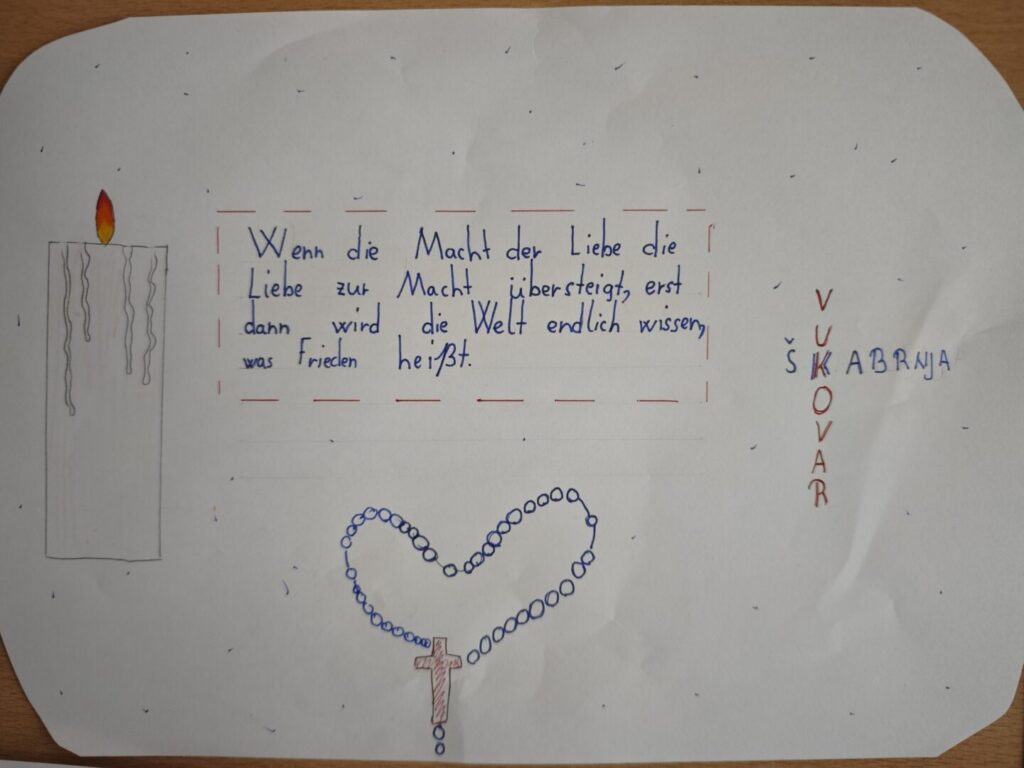 Wenn die Macht der Liebe die
Liebe zur Macht übersteigt, erst
dann wird die Welt endlich wissen,
was Frieden heißt.
VUKOVAR
ŠKABRNJA